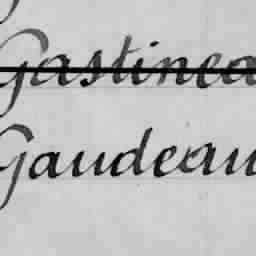 Gastinea
Gaudeau